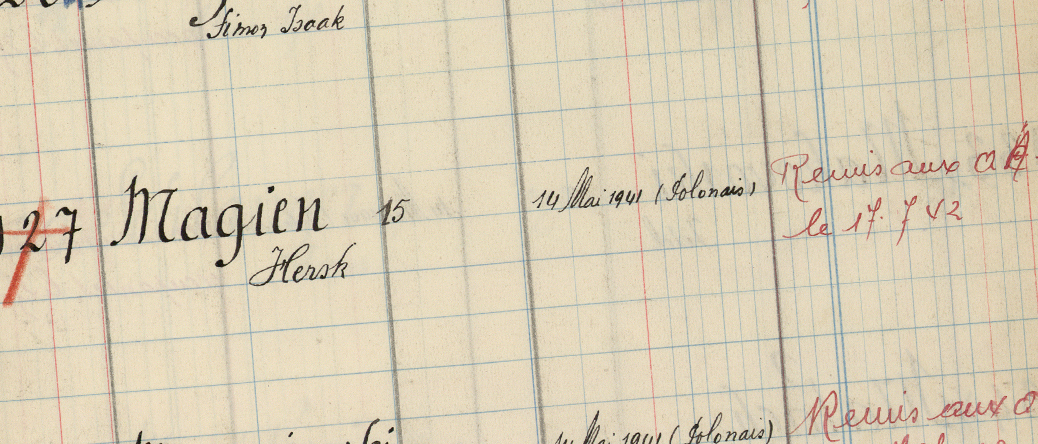 Simon Isaak
127 Magien 15 14 Mai 1941 (Polonais) Remis aux O A.
Hersk le 17.7 42
14 Mai 1941 (Polonais) Remis aux O